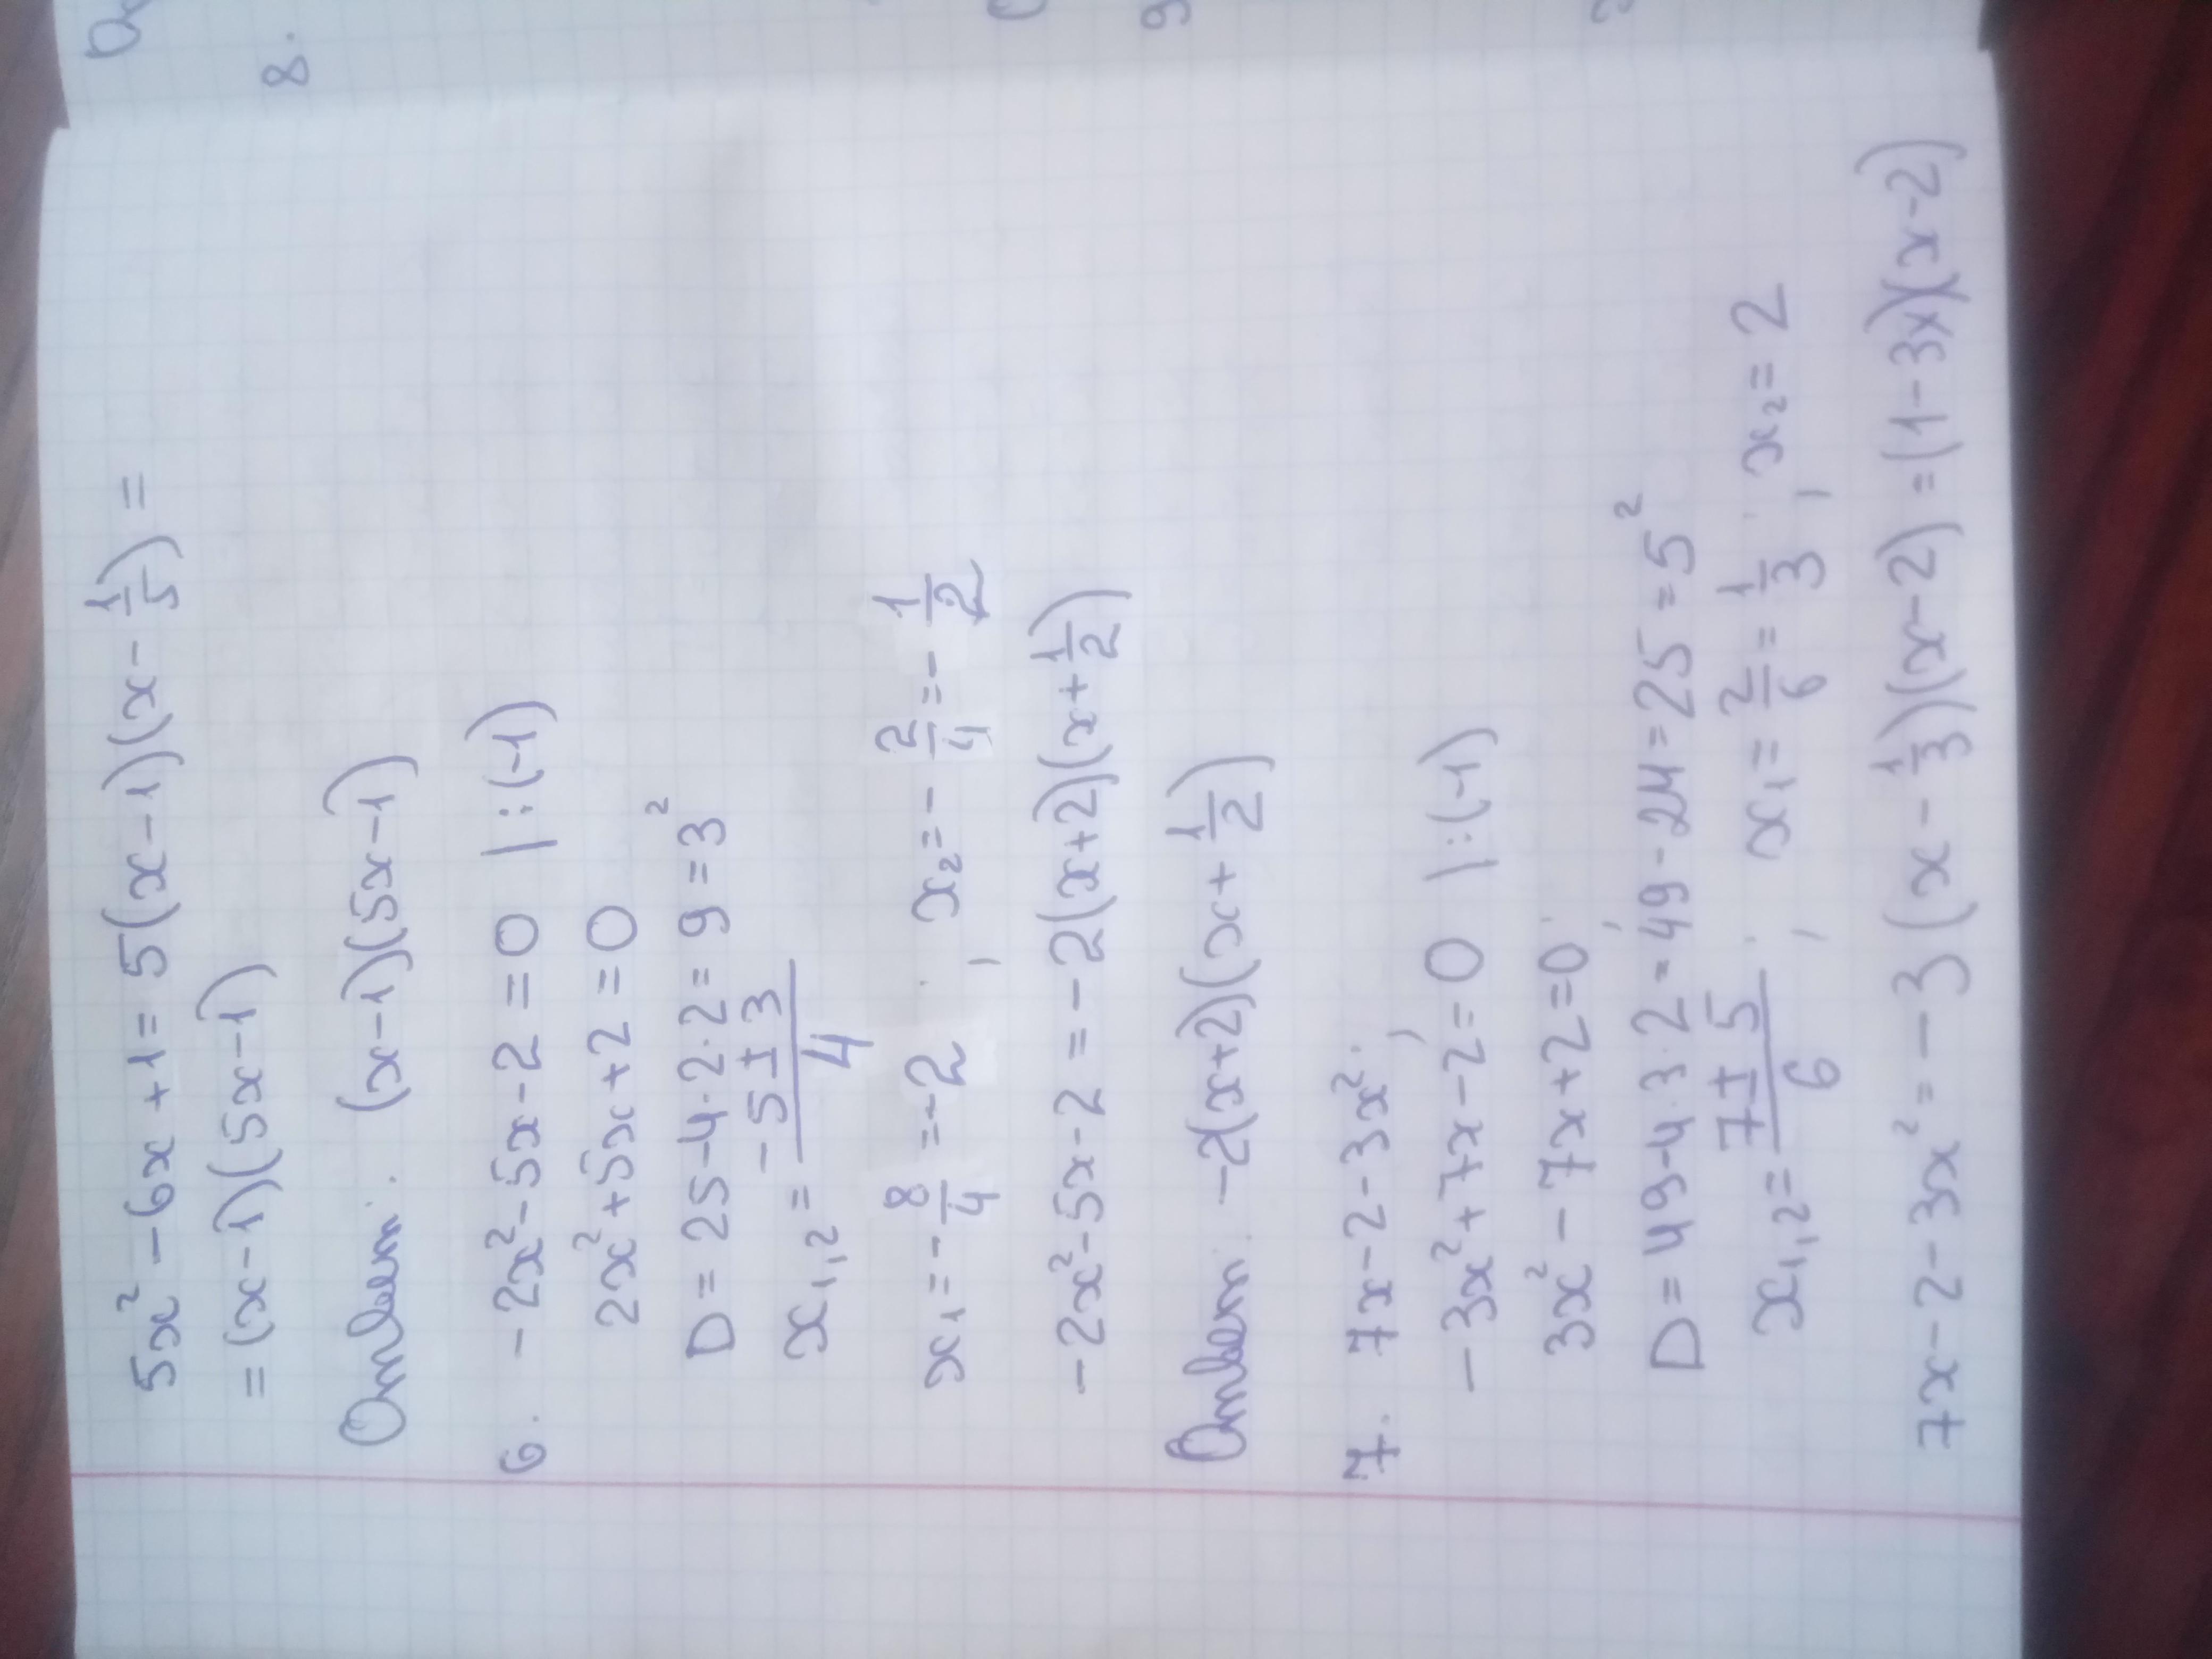 5x² - 6x + 1 = 5(x - 1)(x - 1/5) =
= (x - 1)(5x - 1)
Ответ: (x - 1)(5x - 1)
6. -2x² - 5x - 2 = 0 | : (-1)
2x² + 5x + 2 = 0
D = 25 - 4 · 2 · 2 = 9 = 3²
x₁,₂ = (-5 ± 3)/4
x₁ = -8/4 = -2 ; x₂ = -2/4 = -1/2
-2x² - 5x - 2 = -2(x + 2)(x + 1/2)
Ответ: -2(x + 2)(x + 1/2)
7. 7x - 2 - 3x²;
-3x² + 7x - 2 = 0 | : (-1)
3x² - 7x + 2 = 0;
D = 49 - 4 · 3 · 2 = 49 - 24 = 25 = 5²
x₁,₂ = (7 ± 5)/6 ; x₁ = 2/6 = 1/3 ; x₂ = 2
7x - 2 - 3x² = -3(x - 1/3)(x - 2) = (1 - 3x)(x - 2)
8.
9